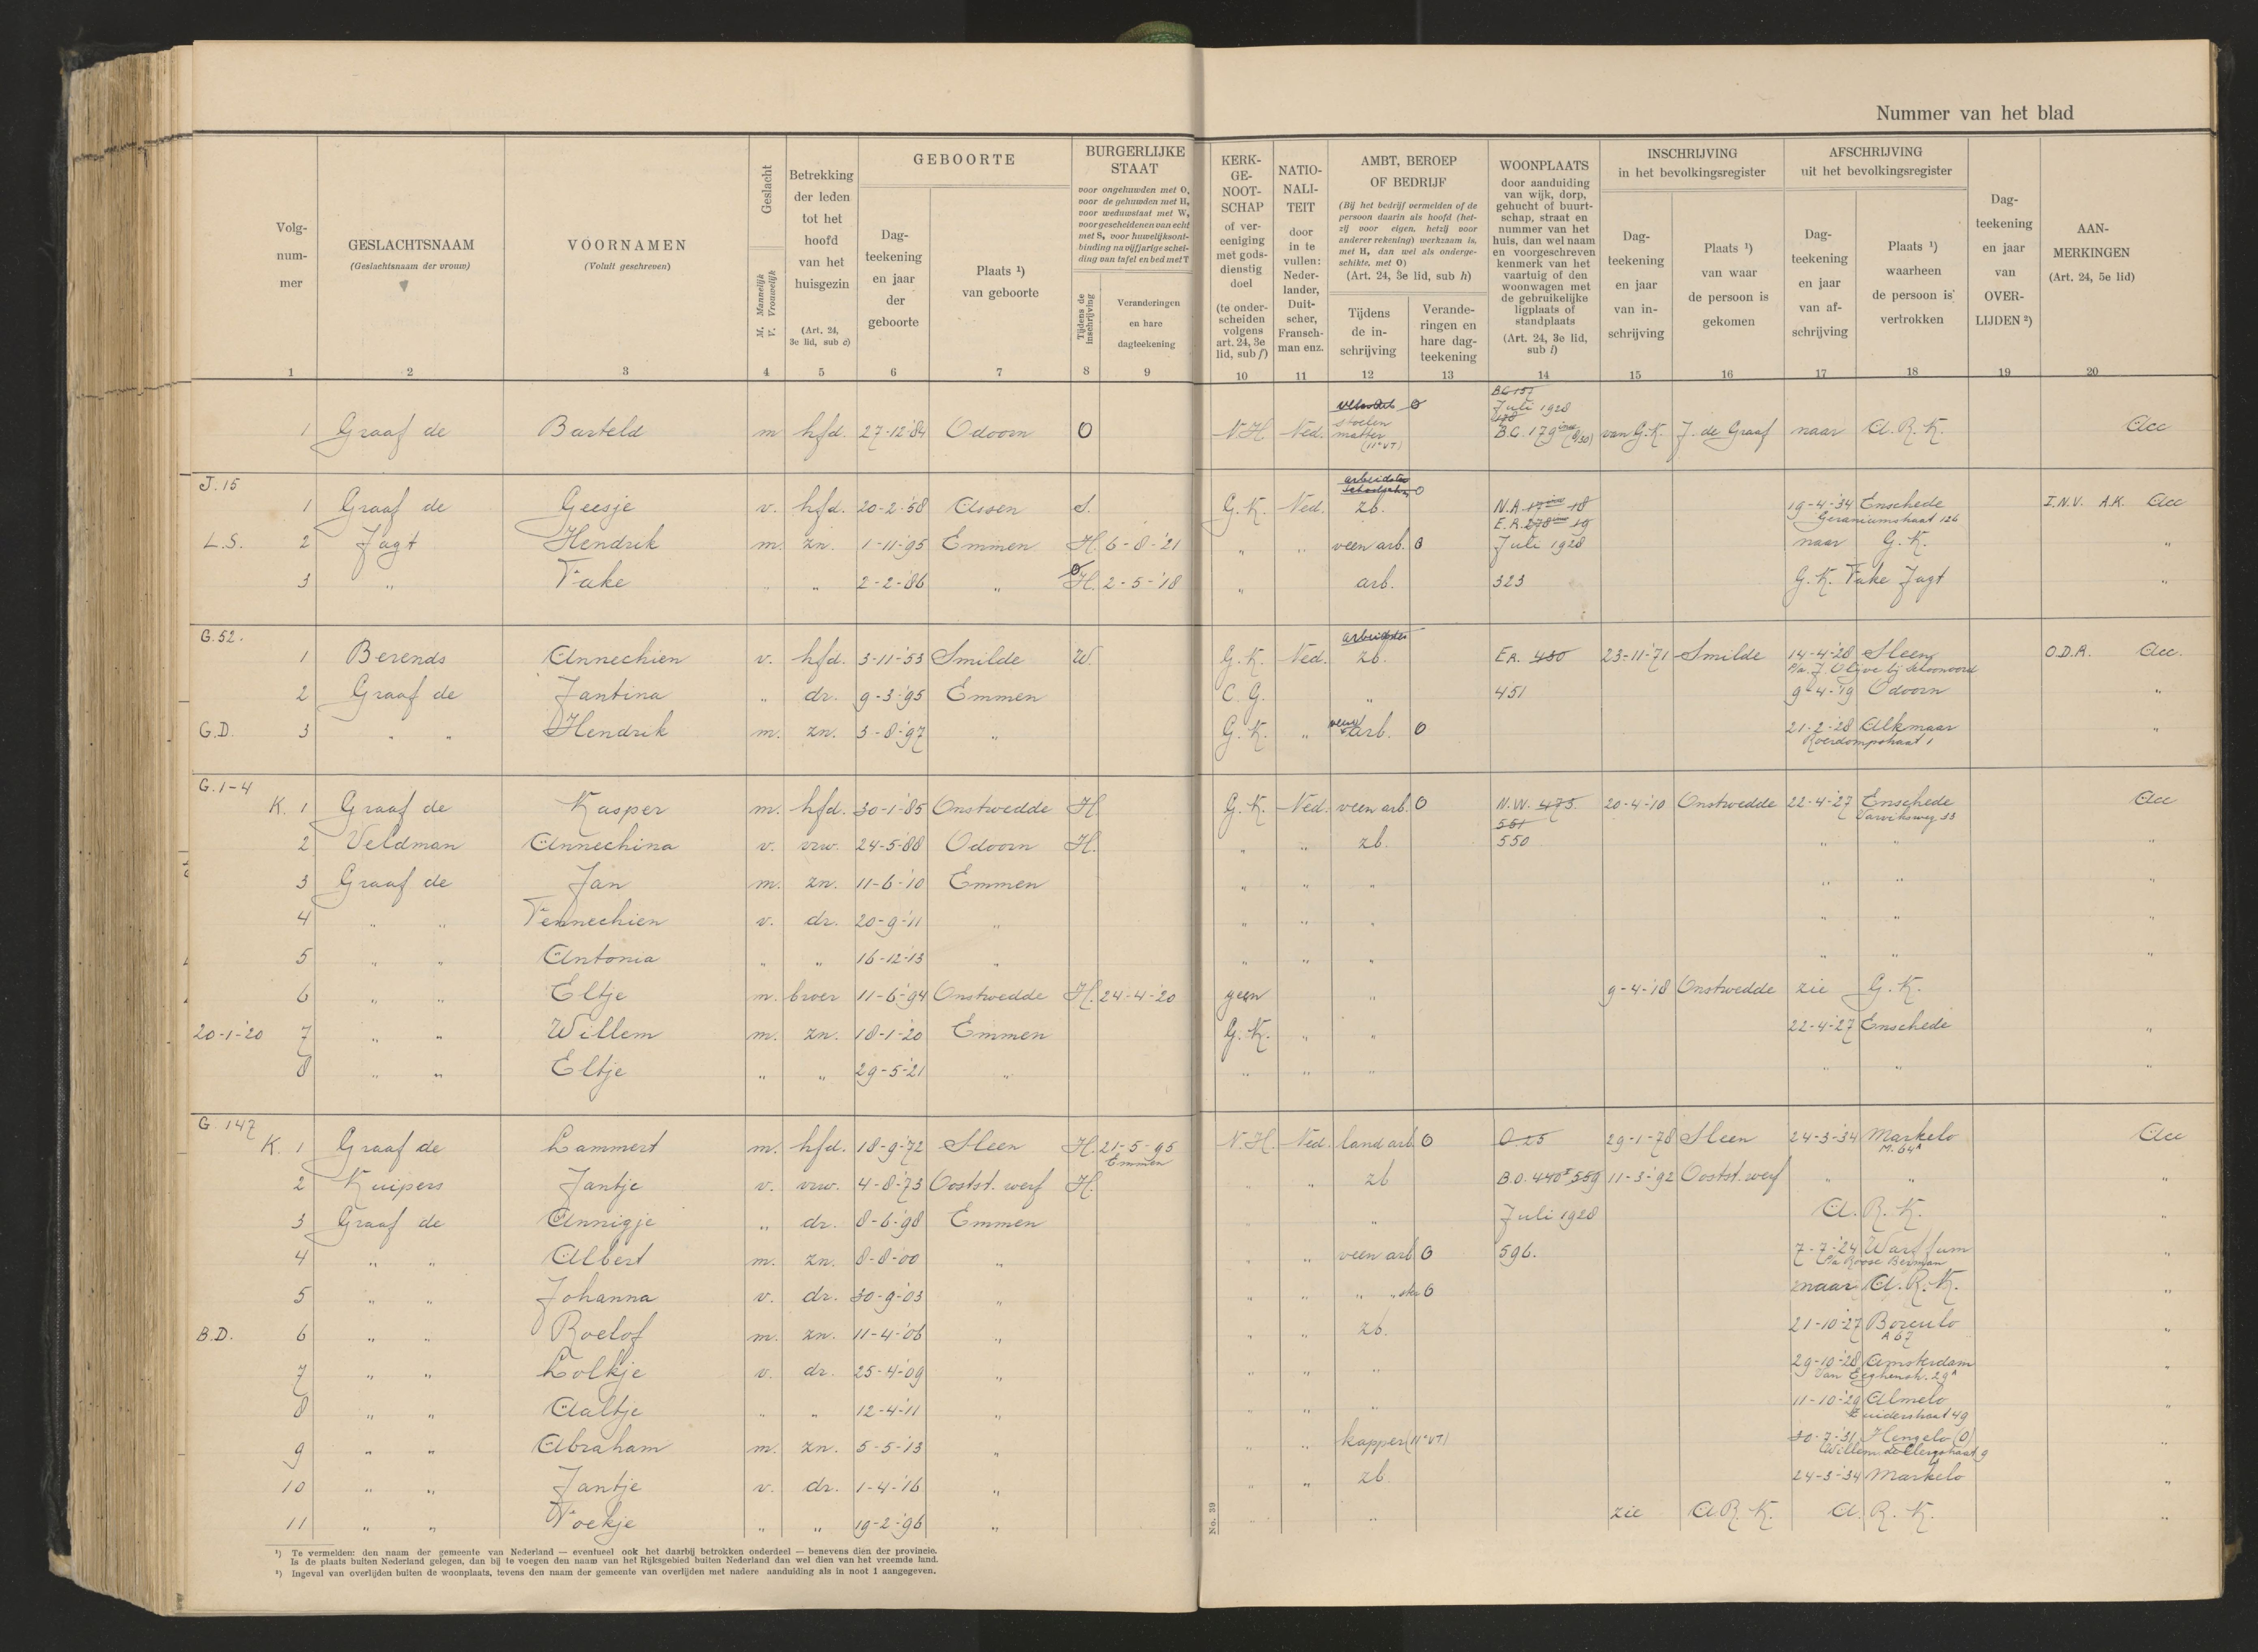 Nummer van het blad
Volg-
num-
mer
1
GESLACHTSNAAM
(Geslachtsnaam der vrouw)
2
VOORNAMEN
(Voluit geschreven)
3
Geslacht
M. Mannelijk
V. Vrouwelijk
4
Betrekking
der leden
tot het
hoofd
van het
huisgezin
(Art. 24,
3e lid, sub c)
5
GEBOORTE
Dag-
teekening
en jaar
der
geboorte
6
Plaats ¹)
van geboorte
7
BURGERLIJKE
STAAT
voor ongehuwden met O,
voor de gehuwden met H,
voor weduwstaat met W,
voor gescheidenen van echt
met S, voor huwelijksont-
binding na vijfjarige schei-
ding van tafel en bed met T
Tijdens de
inschrijving
8
Veranderingen
en hare
dagteekening
9
KERK-
GE-
NOOT-
SCHAP
of ver-
eeniging
met gods-
dienstig
doel
(te onder-
scheiden
volgens
art. 24, 3e
lid, sub f)
10
NATIO-
NALI-
TEIT
door
in te
vullen:
Neder-
lander,
Duit-
scher,
Fransch-
man enz.
11
AMBT, BEROEP
OF BEDRIJF
(Bij het bedrijf vermelden of de
persoon daarin als hoofd (het-
zij voor eigen, hetzij voor
anderer rekening) werkzaam is,
met H, dan wel als onderge-
schikte, met O)
(Art. 24, 3e lid, sub h)
Tijdens
de in-
schrijving
12
Verande-
ringen en
hare dag-
teekening
13
WOONPLAATS
door aanduiding
van wijk, dorp,
gehucht of buurt-
schap, straat en
nummer van het
huis, dan wel naam
en voorgeschreven
kenmerk van het
vaartuig of den
woonwagen met
de gebruikelijke
ligplaats of
standplaats
(Art. 24, 3e lid,
sub i)
14
INSCHRIJVING
in het bevolkingsregister
Dag-
teekening
en jaar
van in-
schrijving
15
Plaats ¹)
van waar
de persoon is
gekomen
16
AFSCHRIJVING
uit het bevolkingsregister
Dag-
teekening
en jaar
van af-
schrijving
17
Plaats ¹)
waarheen
de persoon is
vertrokken
18
Dag-
teekening
en jaar
van
OVER-
LIJDEN ²)
19
AAN-
MERKINGEN
(Art. 24, 5e lid)
20
B.C. 157
Juli 1928
O
stoelen
1 Graaf de Barteld m hfd. 27-12-'84 Odoorn O N.H Ned. matter B.C. 179 (9/30) van G.K. J. de Graaf naar A.R.K. Acc
(11e VT)
J. 15
arbeidster
O
1 Graaf de Geesje v. hfd. 20-2-'58 Assen S. G.K. Ned. zb. N.A. 18 19-4-'34 Enschede I.N.V. A.K. Acc
E.A. 278 19 Geraniumstraat 126
L.S. 2 Jagt Hendrik m. zn. 1-11-'95 Emmen H. 6-8-'21 " " veen arb. O Juli 1928 naar G.K. "
3 " Fake " " 2-2-'86 " O H. 2-5-'18 " arb. 323 G.K. Fake Jagt "
G. 52.
arbeidster
1 Berends Annechien v. hfd. 3-11-'53 Smilde W. G.K. Ned. zb. E.A. 430 23-11-'71 Smilde 14-4-'28 Sleen O.D.A. Acc.
2 Graaf de Jantina " dr. 9-3-'95 Emmen C.G. " 451 9-4-'19 Odoorn "
G.D. 3 " " Hendrik m. zn. 3-8-'97 " G.K. " veen arb. O 21-2-'28 Alkmaar "
Roerdompstraat 1
G. 1-4
K. 1 Graaf de Kasper m. hfd. 30-1-'85 Onstwedde H. G.K. Ned. veen arb. O N.W. 475 20-4-'10 Onstwedde 22-4-'27 Enschede Acc
551
2 Veldman Annechina v. vrw. 24-5-'88 Odoorn H. " " zb. 550 " " "
3 Graaf de Jan m. zn. 11-6-'10 Emmen " " " " " "
4 " " Tennechien v. dr. 20-9-'11 " " " " " " "
5 " " Antonia " " 16-12-'13 " " " " " " "
6 " " Eltje m. broer 11-6-'94 Onstwedde H. 24-4-'20 geen " 9-4-'18 Onstwedde zie G.K.
20-1-'20 7 " " Willem m. zn. 18-1-'20 Emmen G.K. " " 22-4-'27 Enschede "
8 " " Eltje " " 29-5-'21 " " " " " " "
G 147
K. 1 Graaf de Lammert m. hfd. 18-9-'72 Sleen H. 21-5-'95 N.H. Ned. land arb O O. 25 29-1-'78 Sleen 24-3-'34 Markelo Acc
Emmen M. 64A
2 Kuipers Jantje v. vrw. 4-8-'73 Oostst. werf H. " " zb B.O. 440 559 11-3-'92 Oostst. werf " " "
3 Graaf de Annigje " dr. 8-6-'98 Emmen " Juli 1928 A.R.K. "
4 " " Albert m. zn. 8-8-'00 " " " veen arb O 596. 7-7-'24 Warffum "
5 " " Johanna v. dr. 30-9-'03 " " " " " ster O naar A.R.K. "
B.D. 6 " " Roelof m. zn. 11-4-'06 " " " zb. 21-10-'27 Borculo "
A 67
7 " " Lolkje v. dr. 25-4-'09 " " " " 29-10-'28 Amsterdam "
Van Eeghenstr. 29A
8 " " Aaltje " " 12-4-'11 " " " " 11-10-'29 Almelo "
Zuiderstraat 49
9 " " Abraham m. zn. 5-5-'13 " " " kapper (11e VT) 30-7-'31 Hengelo (O) "
Willem de Clerqstraat 9
10 " " Jantje v. dr. 1-4-'16 " " " zb 24-3-'34 Markelo "
11 " " Foekje " " 19-2-'96 " " " zie A R.K. A.R.K. "
No. 39
¹) Te vermelden: den naam der gemeente van Nederland — eventueel ook het daarbij betrokken onderdeel — benevens dien der provincie.
Is de plaats buiten Nederland gelegen, dan bij te voegen den naam van het Rijksgebied buiten Nederland dan wel dien van het vreemde land.
²) Ingeval van overlijden buiten de woonplaats, tevens den naam der gemeente van overlijden met nadere aanduiding als in noot 1 aangegeven.